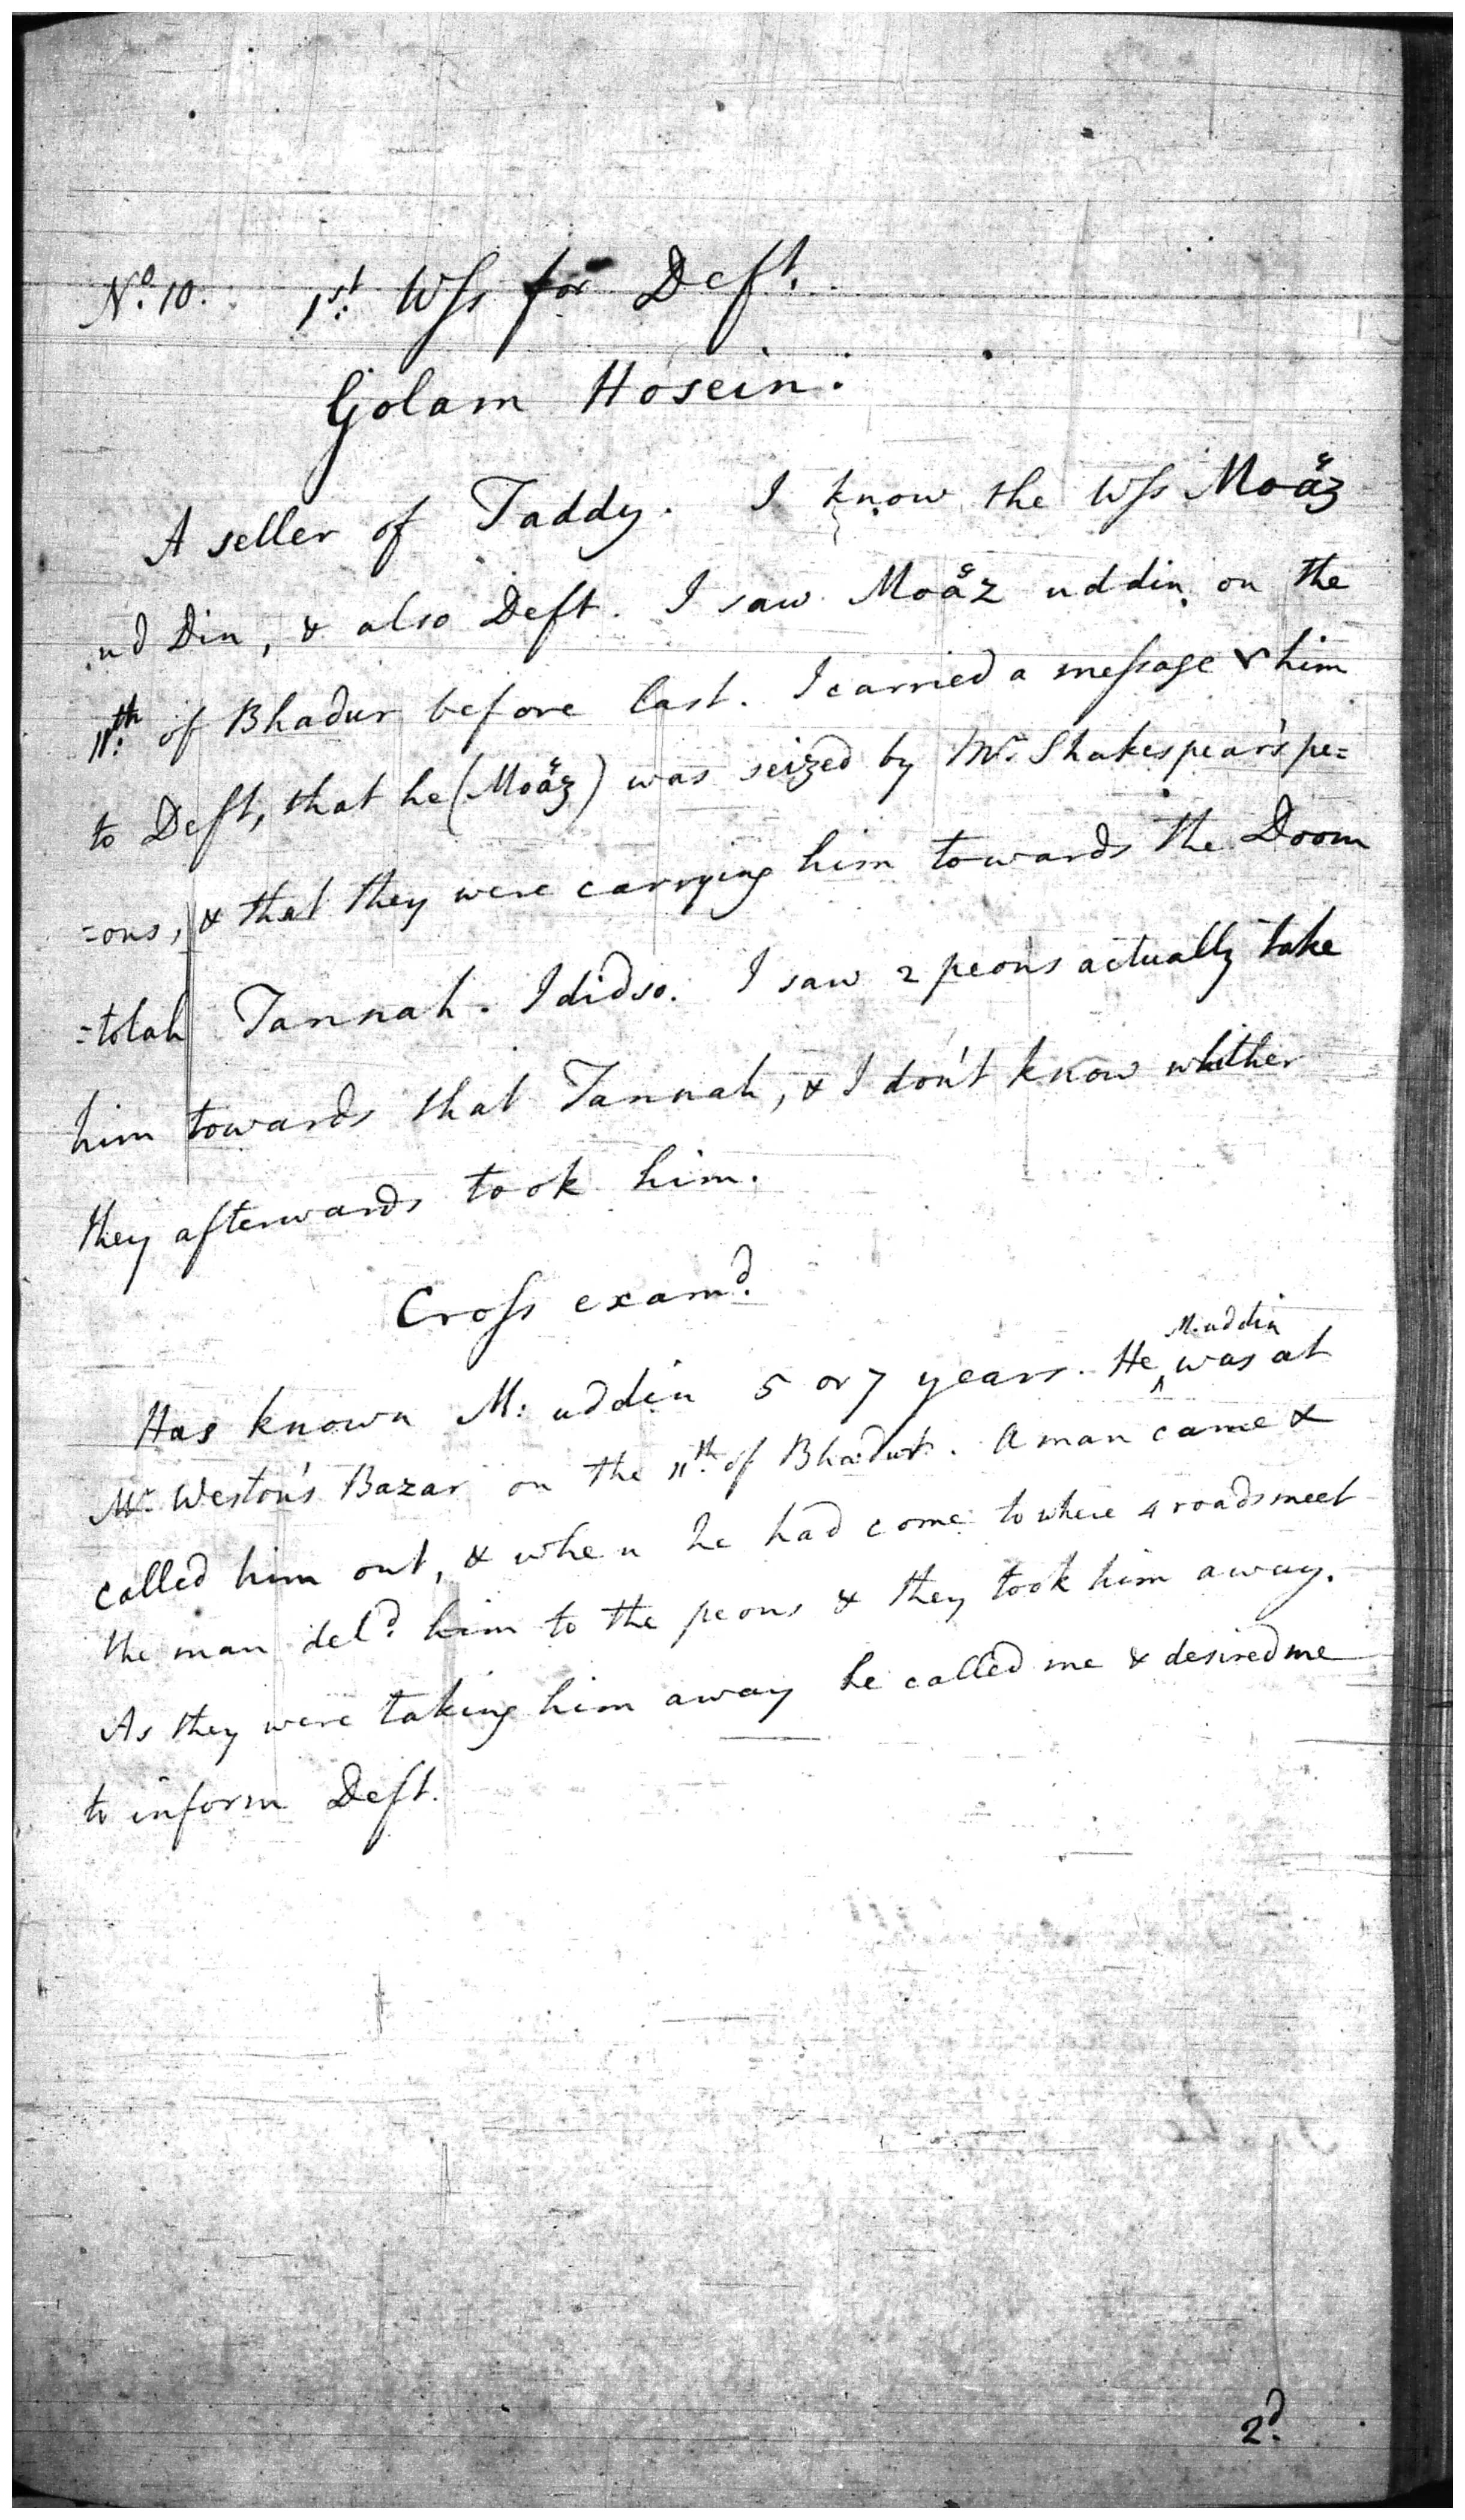 No. 10. 1st. Wss for Deft.
Golam Hosein.
A seller of Taddy. I know the Wss Moäz
ud Din, & also Deft. I saw Moäz uddin on the
11th. of Bhadur before last. I carried a message him
to Deft, that he (Moäz) was seized by Mr. Shakespear's pe=
=ons, & that they were carrying him towards the Doom
=tolah Tannah. I did so. I saw 2 peons actually take
him towards that Tannah, & I don't know whither
they afterwards took him.
Cross examd.
Has known M: uddin 5 or 7 years. He M. uddin was at
Mr. Weston's Bazar on the 11th. of Bhadur. A man came &
called him out, & when he had come to where 4 roads meet
the man deld. him to the peons & they took him away.
As they were taking him away he called me & desired me
to inform Deft.
2d.